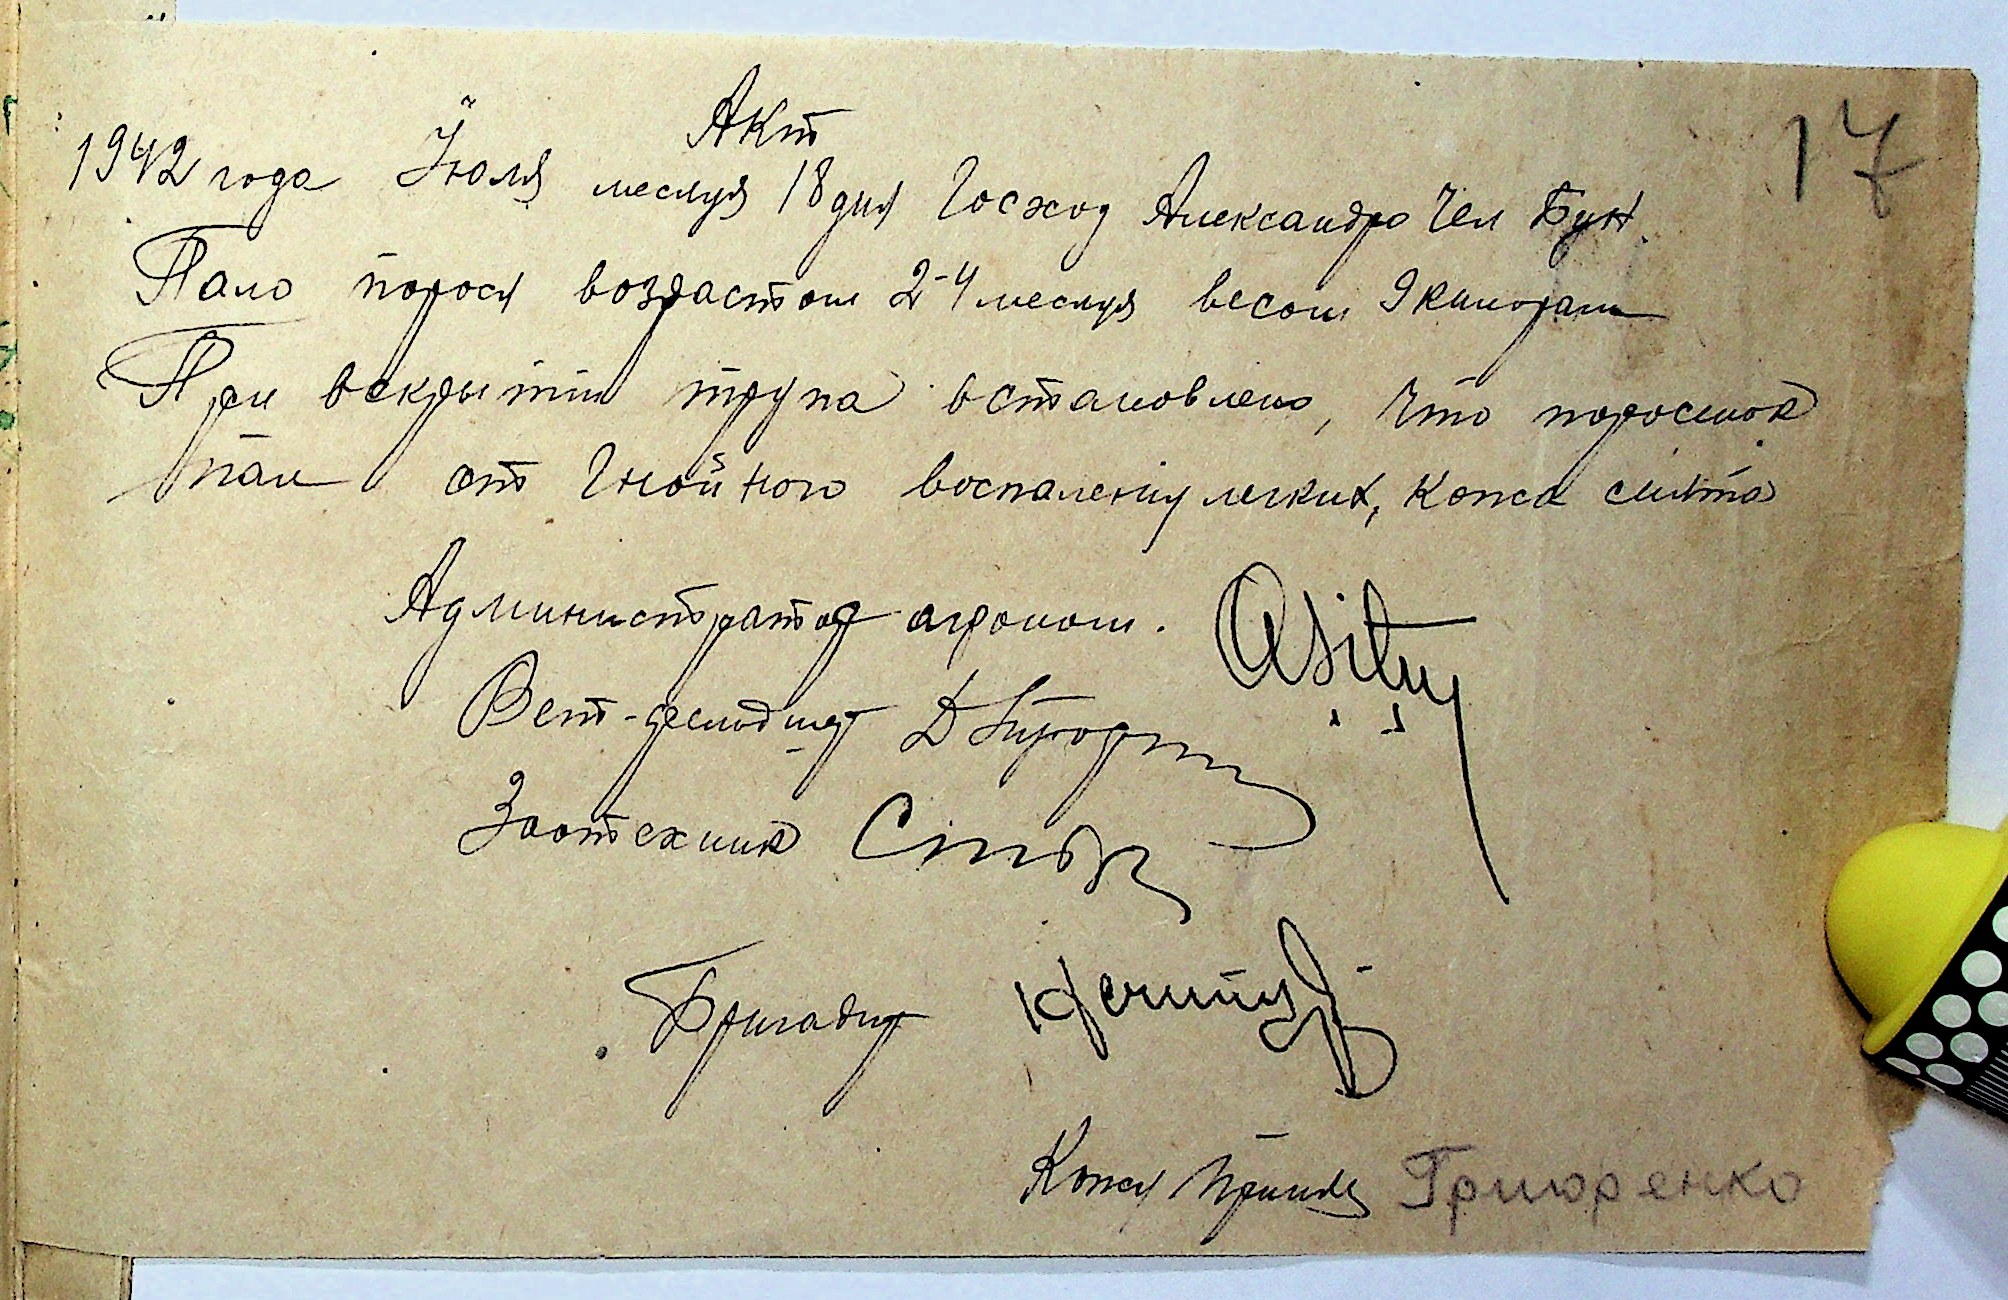 17
Акт
1942 года Июля месяця 18 дня Госход Александро Чел Бун.
Пало порося возрастом 2-4 месяця весом 9 килограм
При вскрытии трупа встановлено, что поросенок
пал от Гнойного воспаления легких, кожа снята
Администратор агроном.
Вет-фельдшер
Зоотехник
Бригадир
Кожу принял Григоренко